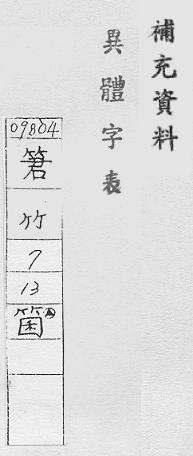 補充資料
異體字表
09804
箬
竹
7
13
箘